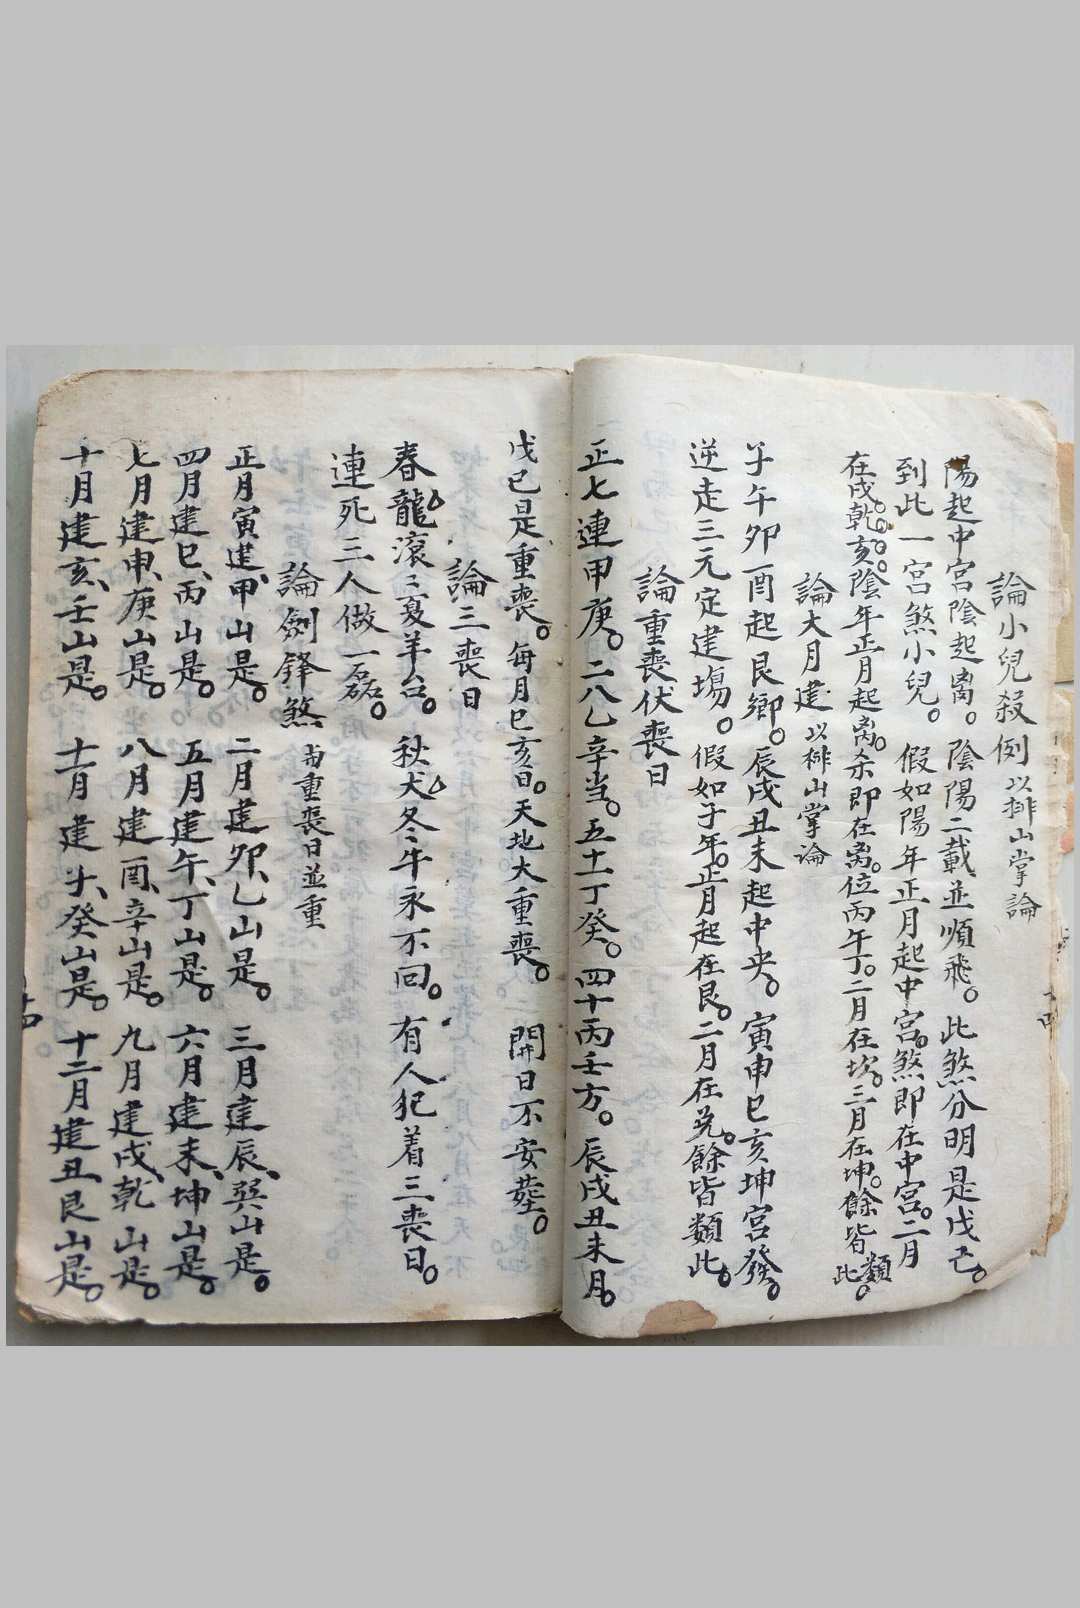 論小兒殺例 以排山掌論
陽起中宮陰起离。陰陽二載並順飛。此煞分明是戊己。
到此一宮煞小兒。假如陽年正月起中宮。煞即在中宮。二月
在戌乾亥。陰年正月起离。杀即在离。位丙午丁。二月在坎。三月在坤。餘皆類此。
論大月建 以排山掌論
子午卯酉起艮鄉。辰戌丑未起中央。寅申巳亥坤宮發。
逆走三元定建塲。假如子年。正月起在艮。二月在兌。餘皆類此。
論重喪伏喪日
正七連甲庚。二八乙辛当。五十一丁癸。四十丙壬方。辰戌丑未月。
戊己是重喪。每月巳亥日。天地大重喪。開日不安葬。
論三喪日
春龍滚二夏羊台。秋犬冬牛永不回。有人犯着三喪日。
連死三人做一磊。
論劍鋒煞 与重喪日並重
正月寅建、甲山是。二月建卯、乙山是。三月建辰、巽山是。
四月建巳、丙山是。五月建午、丁山是。六月建未、坤山是。
七月建申、庚山是。八月建酉、辛山是。九月建戌、乾山是。
十月建亥、壬山是。十一月建子、癸山是。十二月建丑、艮山是。